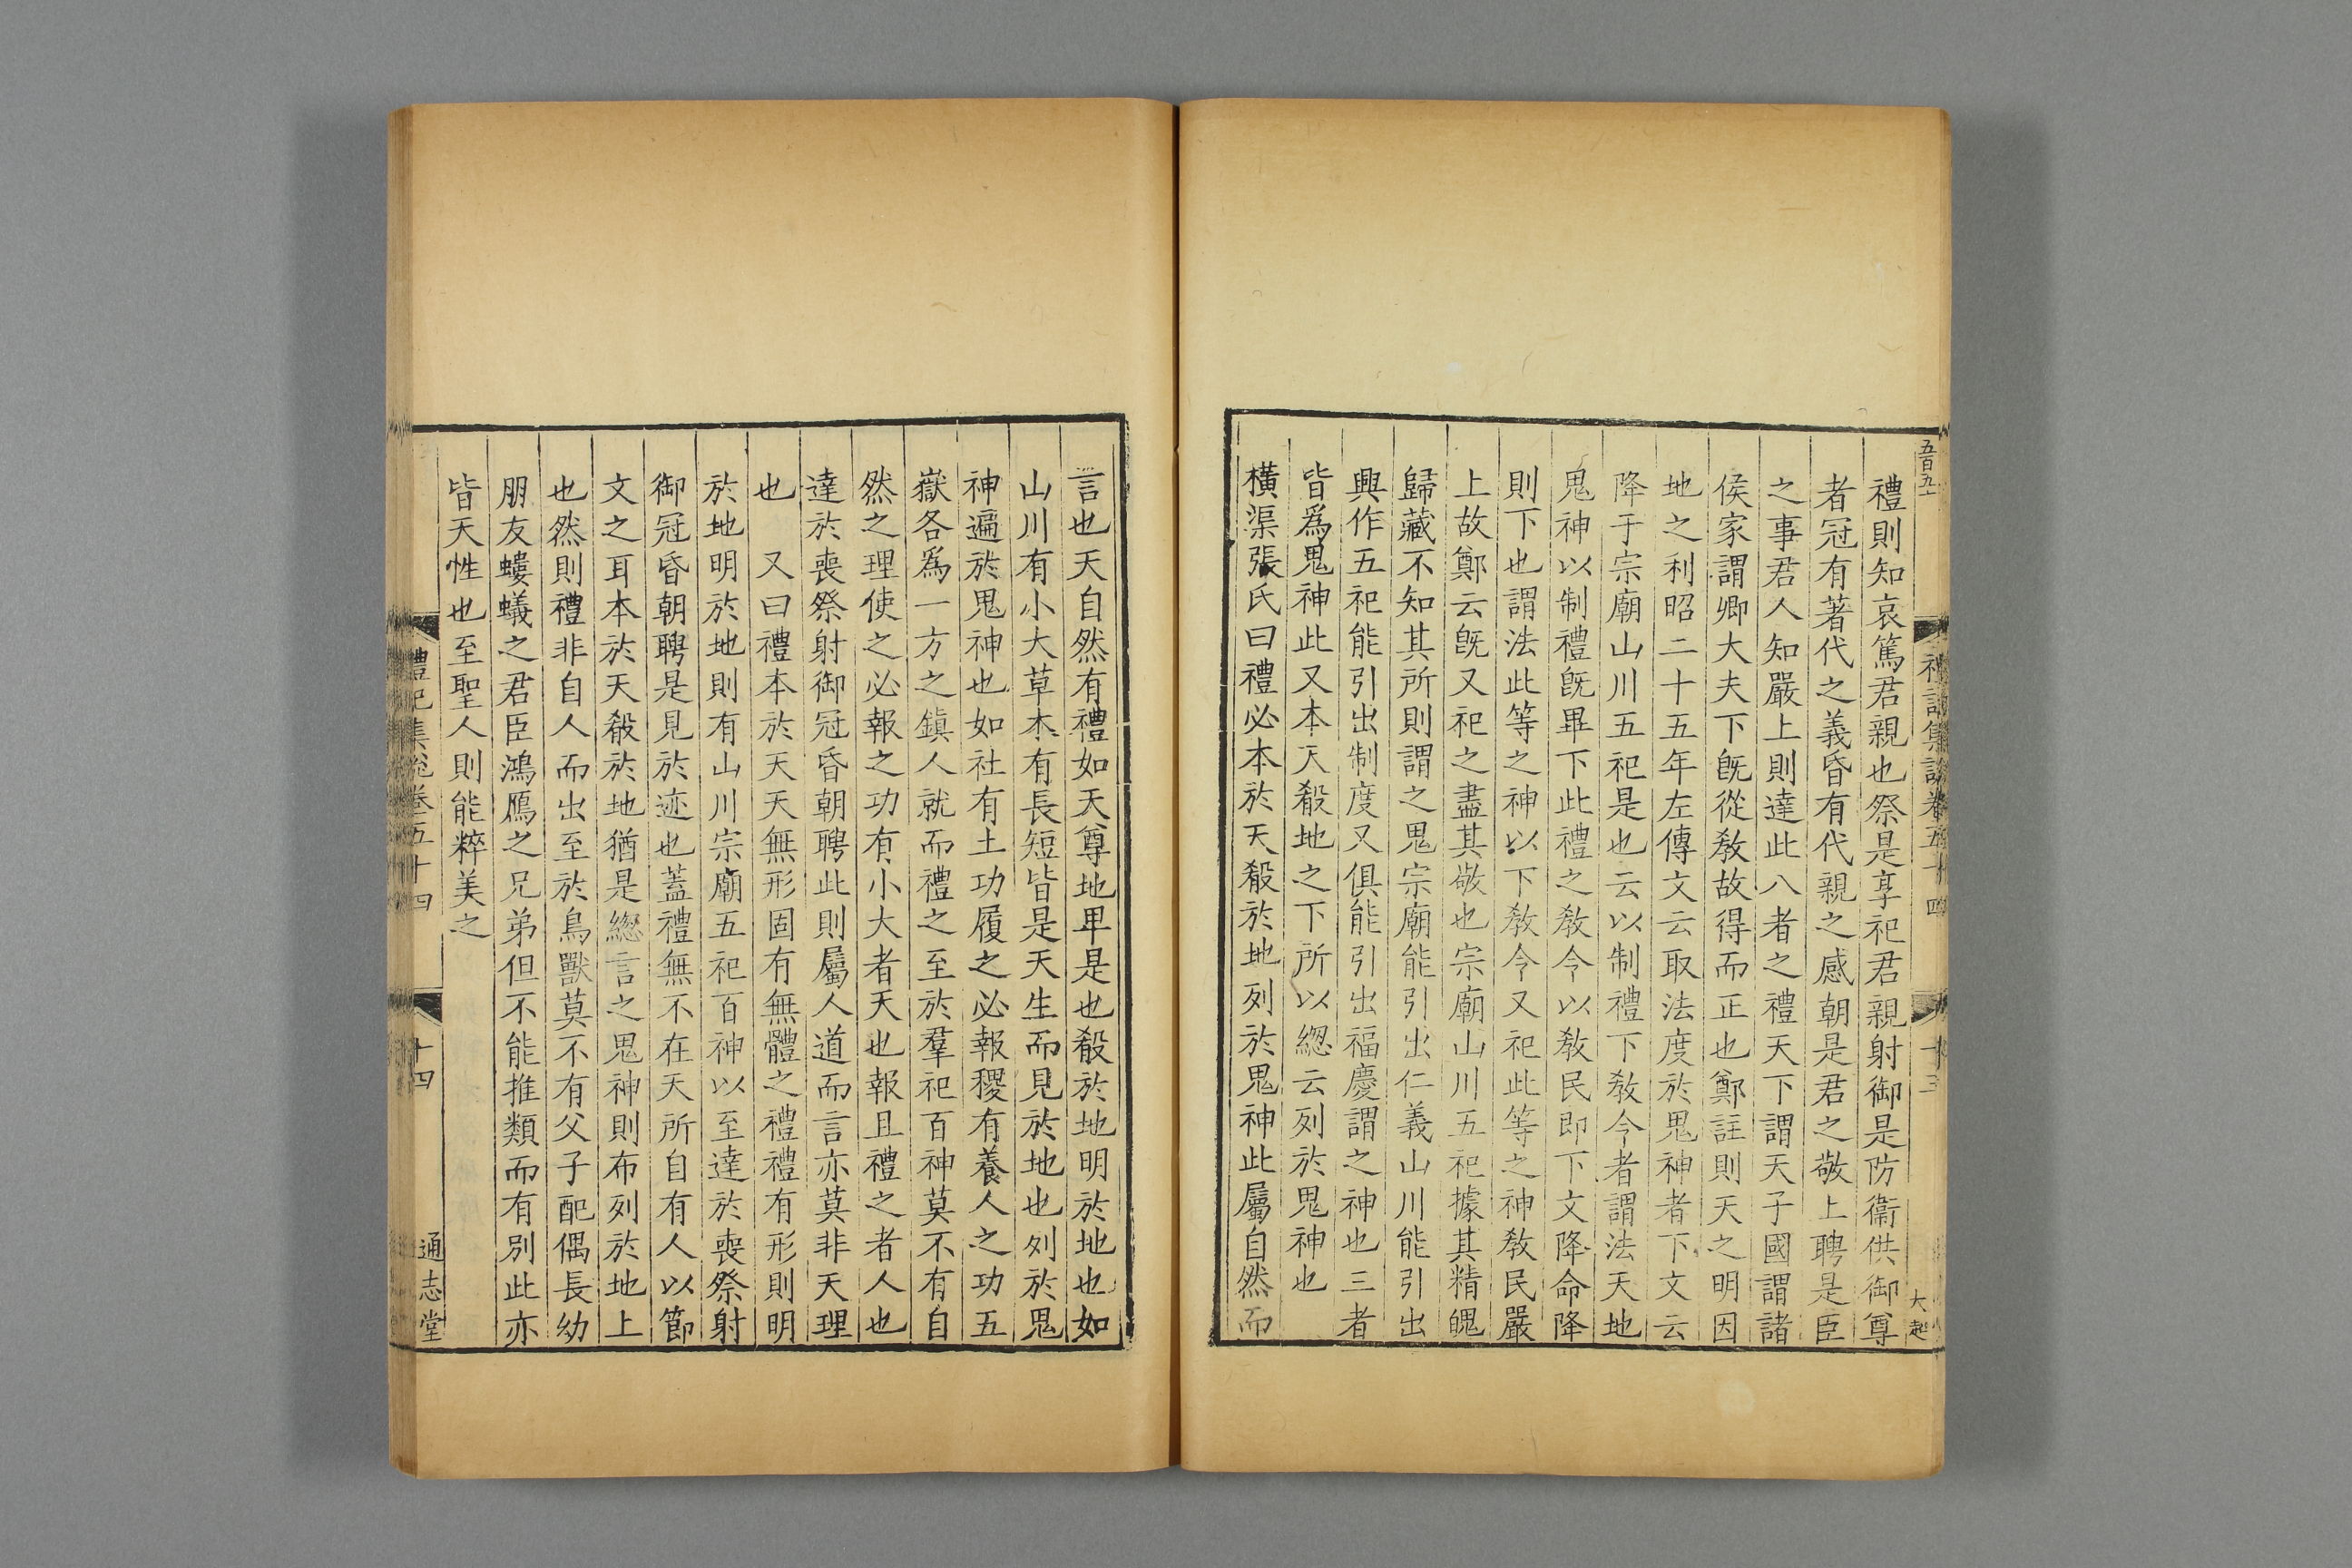 禮則知哀篤君親也祭是享祀君親射御是防衞供御尊
者冠有著代之義昏有代親之感朝是君之敬上聘是臣
之事君人知嚴上則達此八者之禮天下謂天子國謂諸
侯家謂卿大夫下旣從敎故得而正也鄭註則天之明因
地之利昭二十五年左傳文云取法度於鬼神者下文云
降于宗廟山川五祀是也云以制禮下敎令者謂法天地
鬼神以制禮旣畢下此禮之敎令以敎民即下文降命降
則下也謂法此等之神以下敎令又祀此等之神敎民嚴
上故鄭云旣又祀之盡其敬也宗廟山川五祀據其精魄
歸藏不知其所則謂之鬼宗廟能引出仁義山川能引出
興作五祀能引出制度又俱能引出福慶謂之神也三者
皆爲鬼神此又本天殽地之下所以緫云列於鬼神也
橫渠張氏曰禮必本於天殽於地列於鬼神此屬自然而
言也天自然有禮如天尊地卑是也殽於地明於地也如
山川有小大草木有長短皆是天生而見於地也列於鬼
神遍於鬼神也如社有土功履之必報稷有養人之功五
嶽各爲一方之鎭人就而禮之至於羣祀百神莫不有自
然之理使之必報之功有小大者天也報且禮之者人也
達於喪祭射御冠昏朝聘此則屬人道而言亦莫非天理
也　又曰禮本於天天無形固有無體之禮禮有形則明
於地明於地則有山川宗廟五祀百神以至達於喪祭射
御冠昏朝聘是見於迹也蓋禮無不在天所自有人以節
文之耳本於天殽於地猶是緫言之鬼神則布列於地上
也然則禮非自人而出至於鳥獸莫不有父子配偶長幼
朋友螻蟻之君臣鴻鴈之兄弟但不能推類而有別此亦
皆天性也至聖人則能粹美之
禮記集說卷五十四
十四
通志堂